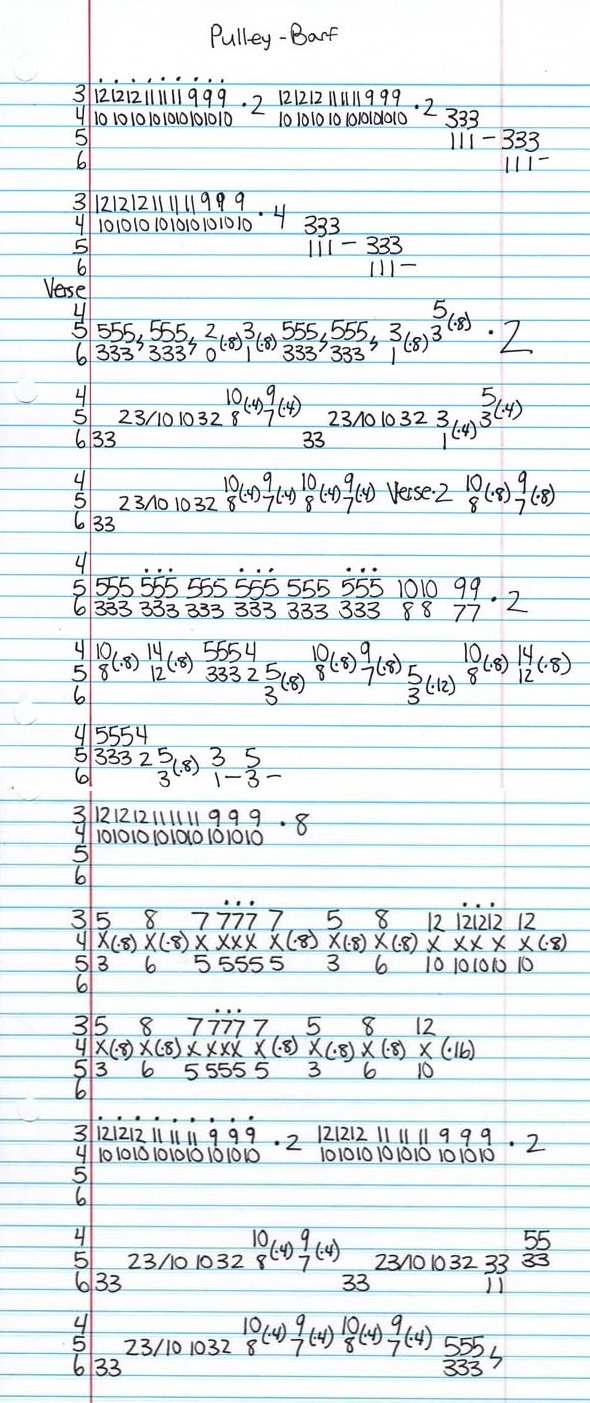 Pulley-Barf
. . . . . . . . .
3 12 12 12 11 11 11 9 9 9 ·2 12 12 12 11 11 11 9 9 9 ·2
4 10 10 10 10 10 10 10 10 10 10 10 10 10 10 10 10 10 10 333
5 111 — 333
6 111 —
3 12 12 12 11 11 11 9 9 9 ·4
4 10 10 10 10 10 10 10 10 10 333
5 111 — 333
6 111 —
Verse
4 5
5 555, 555, 2(·8) 3(·8) 555, 555, 3(·8) 3(·8) ·2
6 333, 333, 0 1 333, 333, 1
4 10(·4) 9(·4) 5(·4)
5 23/10 10 32 8 7 23/10 10 32 3 3
6 33 33 1(·4)
4 10(·4) 9(·4) 10(·4) 9(·4) Verse·2 10(·8) 9(·8)
5 23/10 10 32 8 7 8 7 8 7
6 33
4 ... ... ...
5 555 555 555 555 555 555 10 10 99 ·2
6 333 333 333 333 333 333 8 8 77
4 10(·8) 14(·8) 555 4 10(·8) 9(·8) 10(·8) 14(·8)
5 8 12 333 2 5(·8) 8 7 5(·12) 8 12
6 3 3
4 555 4
5 333 2 5(·8) 3 5
6 3 1 — 3 —
3 12 12 12 11 11 11 9 9 9 ·8
4 10 10 10 10 10 10 10 10 10
5
6
... ...
3 5 8 7 777 7 5 8 12 12 12 12 12
4 X(·8) X(·8) X XXX X(·8) X(·8) X(·8) X X X X X(·8)
5 3 6 5 555 5 3 6 10 10 10 10 10
6
...
3 5 8 7 777 7 5 8 12
4 X(·8) X(·8) X XXX X(·8) X(·8) X(·8) X(·16)
5 3 6 5 555 5 3 6 10
6
. . . . . . . . .
3 12 12 12 11 11 11 9 9 9 ·2 12 12 12 11 11 11 9 9 9 ·2
4 10 10 10 10 10 10 10 10 10 10 10 10 10 10 10 10 10 10
5
6
4 10(·4) 9(·4) 55
5 23/10 10 32 8 7 23/10 10 32 33 33
6 33 33 11
4 10(·4) 9(·4) 10(·4) 9(·4)
5 23/10 10 32 8 7 8 7 555,
6 33 333